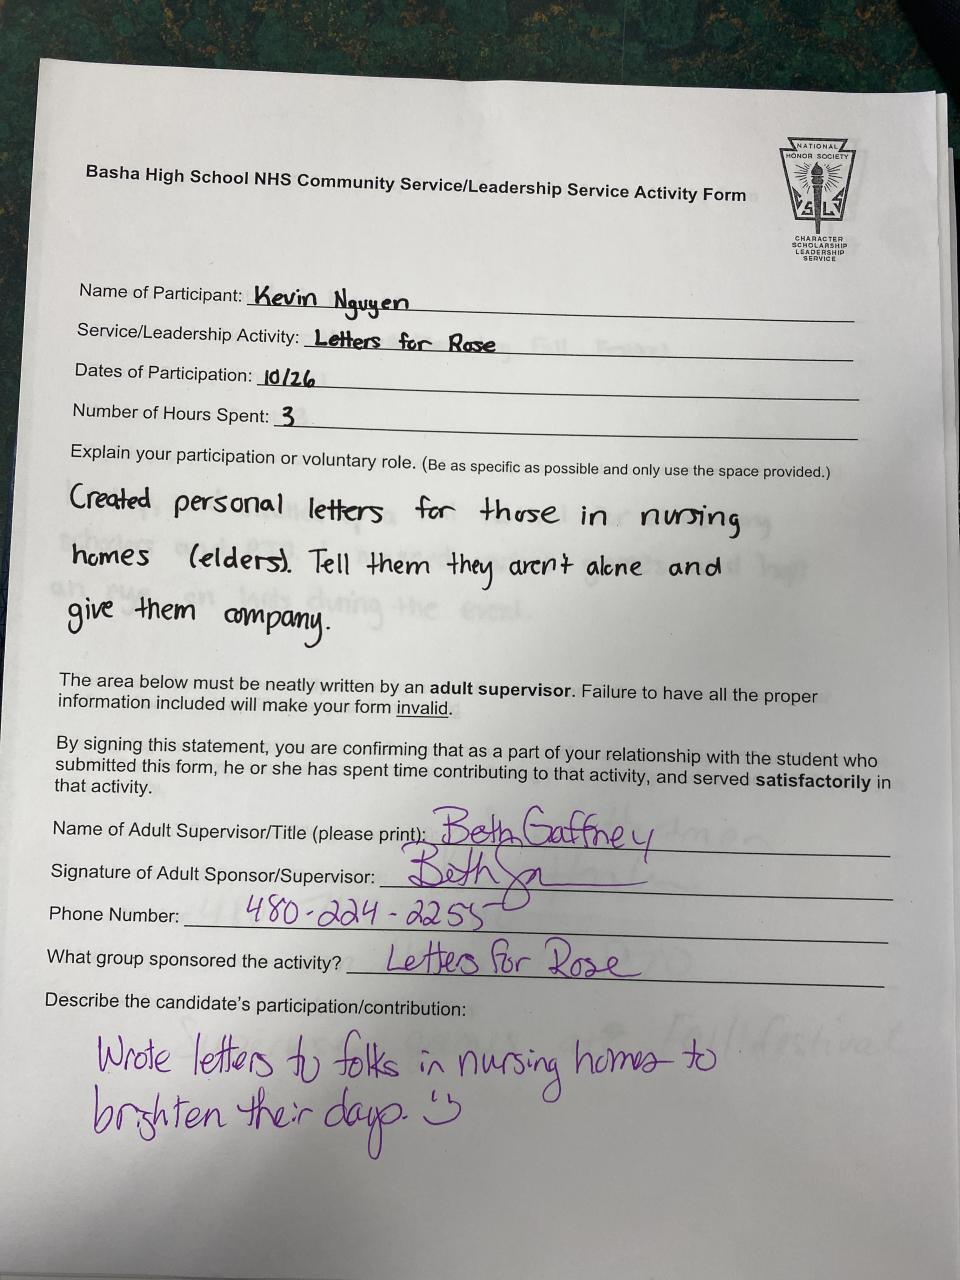 NATIONAL
HONOR SOCIETY
S L S
CHARACTER
SCHOLARSHIP
LEADERSHIP
SERVICE
Basha High School NHS Community Service/Leadership Service Activity Form
Name of Participant: Kevin Nguyen
Service/Leadership Activity: Letters for Rose
Dates of Participation: 10/26
Number of Hours Spent: 3
Explain your participation or voluntary role. (Be as specific as possible and only use the space provided.)
Created personal letters for those in nursing
homes (elders). Tell them they aren't alone and
give them company.
The area below must be neatly written by an adult supervisor. Failure to have all the proper
information included will make your form invalid.
By signing this statement, you are confirming that as a part of your relationship with the student who
submitted this form, he or she has spent time contributing to that activity, and served satisfactorily in
that activity.
Name of Adult Supervisor/Title (please print): Beth Gaffney
Signature of Adult Sponsor/Supervisor: Beth
Phone Number: 480-224-2255
What group sponsored the activity? Letters for Rose
Describe the candidate's participation/contribution:
Wrote letters to folks in nursing homes to
brighten their days.